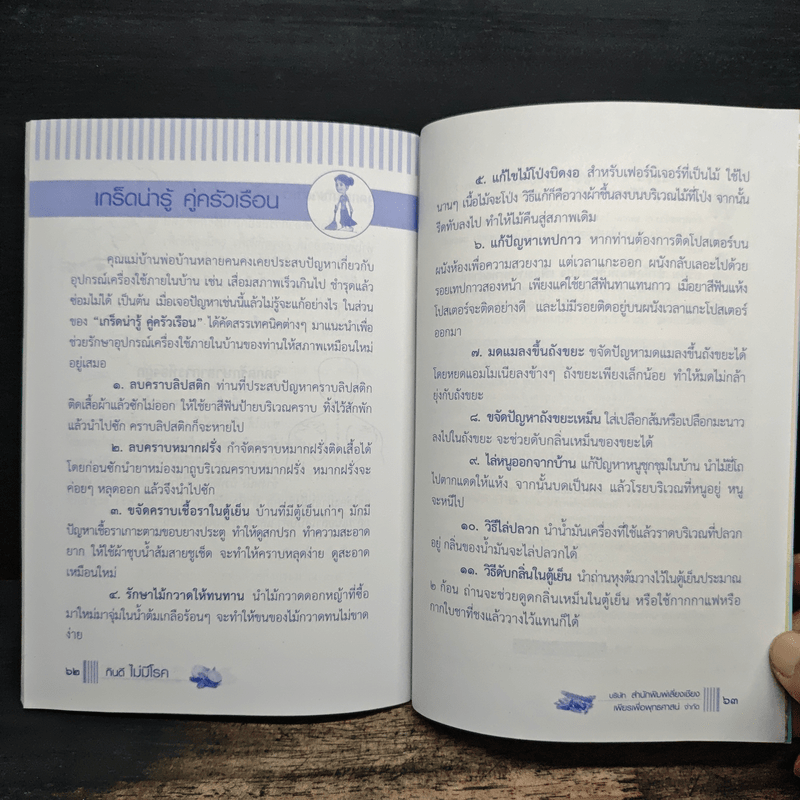 เกร็ดน่ารู้ คู่ครัวเรือน
คุณแม่บ้านพ่อบ้านหลายคนคงเคยประสบปัญหาเกี่ยวกับ
อุปกรณ์เครื่องใช้ภายในบ้าน เช่น เสื่อมสภาพเร็วเกินไป ชำรุดแล้ว
ซ่อมไม่ได้ เป็นต้น เมื่อเจอปัญหาเช่นนี้แล้วไม่รู้จะแก้อย่างไร ในส่วน
ของ “เกร็ดน่ารู้ คู่ครัวเรือน” ได้คัดสรรเทคนิคต่างๆ มาแนะนำเพื่อ
ช่วยรักษาอุปกรณ์เครื่องใช้ภายในบ้านของท่านให้สภาพเหมือนใหม่
อยู่เสมอ
๑. ลบคราบลิปสติก ท่านที่ประสบปัญหาคราบลิปสติก
ติดเสื้อผ้าแล้วซักไม่ออก ให้ใช้ยาสีฟันป้ายบริเวณคราบ ทิ้งไว้สักพัก
แล้วนำไปซัก คราบลิปสติกก็จะหายไป
๒. ลบคราบหมากฝรั่ง กำจัดคราบหมากฝรั่งติดเสื้อได้
โดยก่อนซักนำยาหม่องมาถูบริเวณคราบหมากฝรั่ง หมากฝรั่งจะ
ค่อยๆ หลุดออก แล้วจึงนำไปซัก
๓. ขจัดคราบเชื้อราในตู้เย็น บ้านที่มีตู้เย็นเก่าๆ มักมี
ปัญหาเชื้อราเกาะตามขอบยางประตู ทำให้ดูสกปรก ทำความสะอาด
ยาก ให้ใช้ผ้าชุบน้ำส้มสายชูเช็ด จะทำให้คราบหลุดง่าย ดูสะอาด
เหมือนใหม่
๔. รักษาไม้กวาดให้ทนทาน นำไม้กวาดดอกหญ้าที่ซื้อ
มาใหม่มาจุ่มในน้ำต้มเกลือร้อนๆ จะทำให้ขนของไม้กวาดทนไม่ขาด
ง่าย
๖๒ กินดี ไม่มีโรค
๕. แก้ไขไม้โป่งบิดงอ สำหรับเฟอร์นิเจอร์ที่เป็นไม้ ใช้ไป
นานๆ เนื้อไม้จะโป่ง วิธีแก้ก็คือวางผ้าชื้นลงบนบริเวณไม้ที่โป่ง จากนั้น
รีดทับลงไป ทำให้ไม้คืนสู่สภาพเดิม
๖. แก้ปัญหาเทปกาว หากท่านต้องการติดโปสเตอร์บน
ผนังห้องเพื่อความสวยงาม แต่เวลาแกะออก ผนังกลับเลอะไปด้วย
รอยเทปกาวสองหน้า เพียงแค่ใช้ยาสีฟันทาแทนกาว เมื่อยาสีฟันแห้ง
โปสเตอร์จะติดอย่างดี และไม่มีรอยติดอยู่บนผนังเวลาแกะโปสเตอร์
ออกมา
๗. มดแมลงขึ้นถังขยะ ขจัดปัญหามดแมลงขึ้นถังขยะได้
โดยหยดแอมโมเนียลงข้างๆ ถังขยะเพียงเล็กน้อย ทำให้มดไม่กล้า
ยุ่งกับถังขยะ
๘. ขจัดปัญหาถังขยะเหม็น ใส่เปลือกส้มหรือเปลือกมะนาว
ลงไปในถังขยะ จะช่วยดับกลิ่นเหม็นของขยะได้
๙. ไล่หนูออกจากบ้าน แก้ปัญหาหนูชุกชุมในบ้าน นำใบยี่โถ
ไปตากแดดให้แห้ง จากนั้นบดเป็นผง แล้วโรยบริเวณที่หนูอยู่ หนู
จะหนีไป
๑๐. วิธีไล่ปลวก นำน้ำมันเครื่องที่ใช้แล้วราดบริเวณที่ปลวก
อยู่ กลิ่นของน้ำมันจะไล่ปลวกได้
๑๑. วิธีดับกลิ่นในตู้เย็น นำถ่านหุงต้มวางไว้ในตู้เย็นประมาณ
๒ ก้อน ถ่านจะช่วยดูดกลิ่นเหม็นในตู้เย็น หรือใช้กากกาแฟหรือ
กากใบชาที่ชงแล้ววางไว้แทนก็ได้
บริษัท สำนักพิมพ์เลี่ยงเชียง
เพียรเพื่อพุทธศาสน์ จำกัด ๖๓